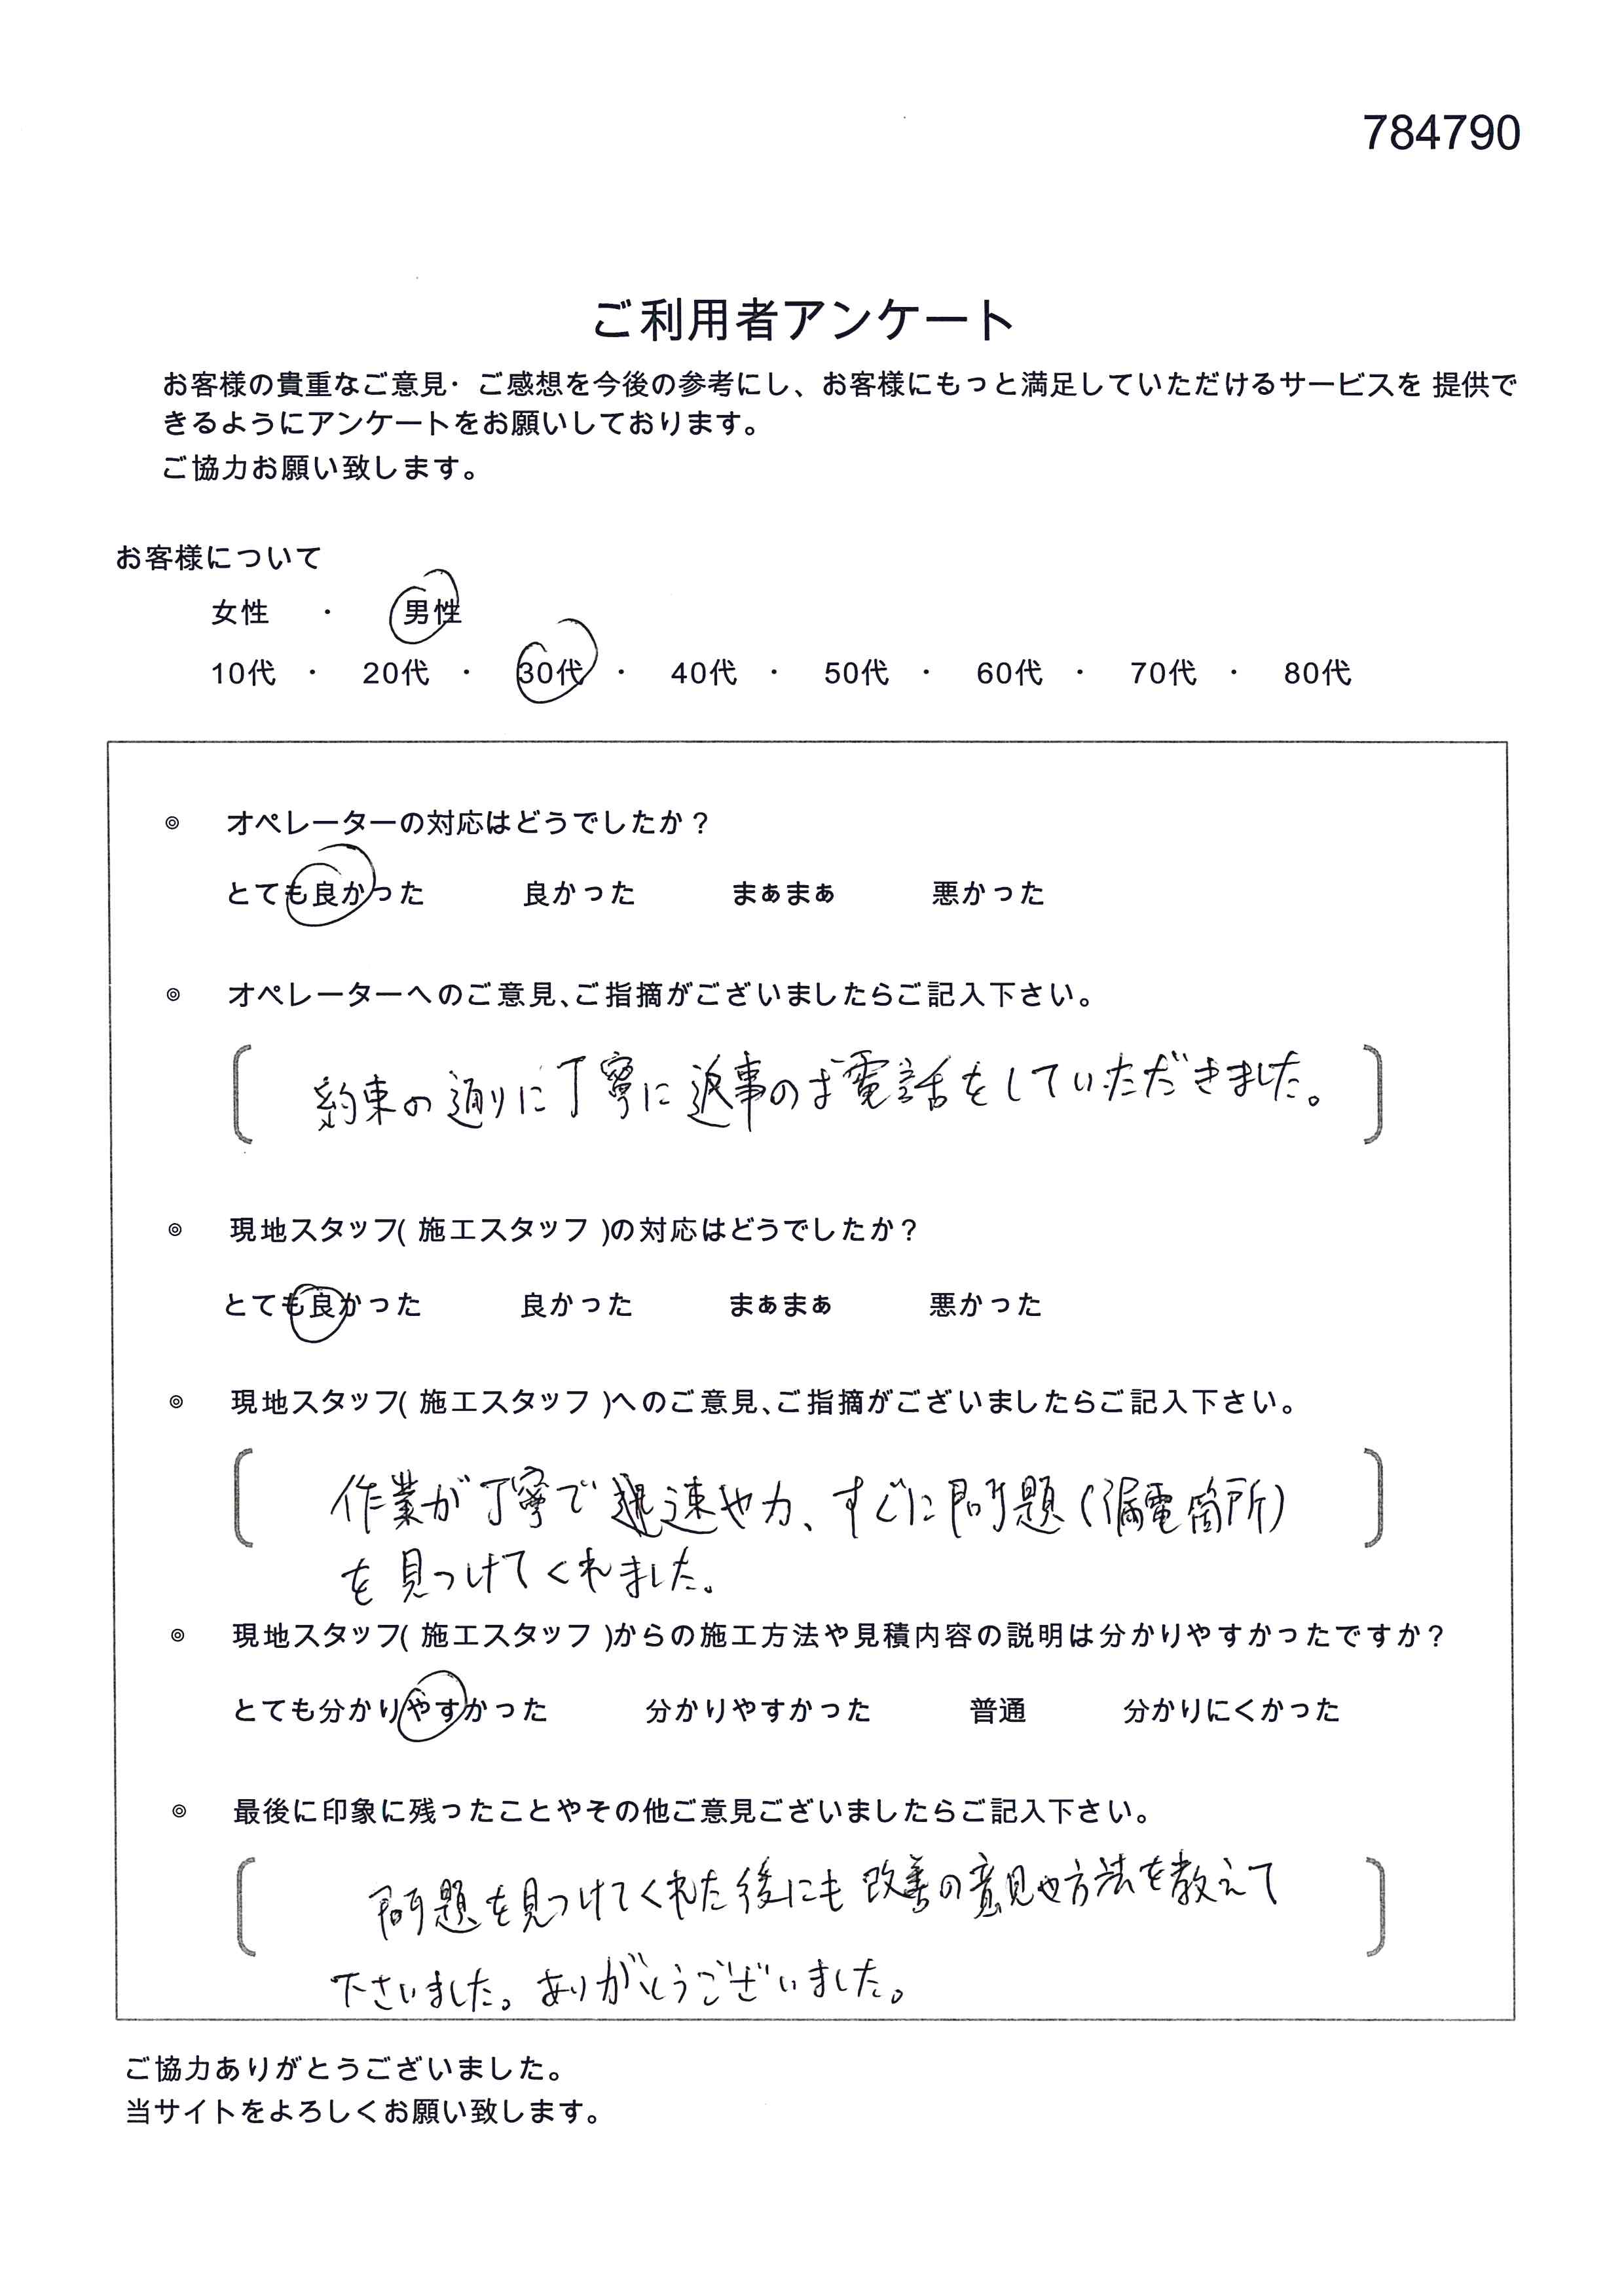 784790
ご利用者アンケート
お客様の貴重なご意見・ご感想を今後の参考にし、お客様にもっと満足していただけるサービスを 提供で
きるようにアンケートをお願いしております。
ご協力お願い致します。
お客様について
女性 ・ 男性
10代 ・ 20代 ・ 30代 ・ 40代 ・ 50代 ・ 60代 ・ 70代 ・ 80代
◎ オペレーターの対応はどうでしたか？
とても良かった 良かった まぁまぁ 悪かった
◎ オペレーターへのご意見、ご指摘がございましたらご記入下さい。
約束の通りに丁寧に返事のお電話をしていただきました。
◎ 現地スタッフ( 施工スタッフ )の対応はどうでしたか？
とても良かった 良かった まぁまぁ 悪かった
◎ 現地スタッフ( 施工スタッフ )へのご意見、ご指摘がございましたらご記入下さい。
作業が丁寧で、すぐに問題（漏電箇所）
を見つけてくれました。
◎ 現地スタッフ( 施工スタッフ )からの施工方法や見積内容の説明は分かりやすかったですか？
とても分かりやすかった 分かりやすかった 普通 分かりにくかった
◎ 最後に印象に残ったことやその他ご意見ございましたらご記入下さい。
問題を見つけてくれた後にも改善の意見や方法を教えて
下さいました。ありがとうございました。
ご協力ありがとうございました。
当サイトをよろしくお願い致します。